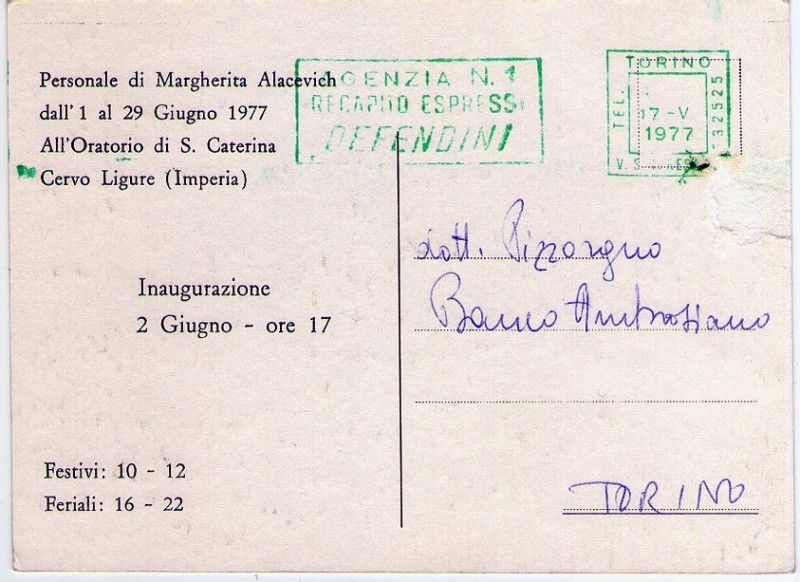 Personale di Margherita Alacevich
dall'1 al 29 Giugno 1977
All'Oratorio di S. Caterina
Cervo Ligure (Imperia)
Inaugurazione
2 Giugno - ore 17
Festivi: 10 - 12
Feriali: 16 - 22
AGENZIA N. 1
RECAPITO ESPRESSI
DEFENDINI
TORINO
TEL.
17-V
1977
32525
V. S.
dott. Pizzorgno
Banco Ambrosiano
TORINO